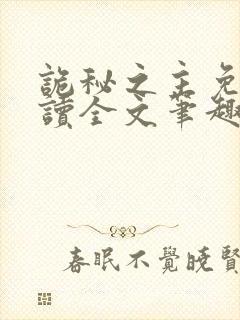 詭秘之主免
讀全文筆趣
春眠不覺曉賢